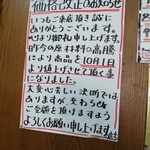 価格改正のお知らせ
いつもご来店頂き誠に
ありがとうございます。
心より御礼申し上げます。
昨今の原材料の高騰
により商品を10月1日
より値上げさせて頂く事
になりました。
大変心苦しい決断では
ありますが変わらぬ
ご愛顧を頂きますよう
よろしくお願い申し上げます。